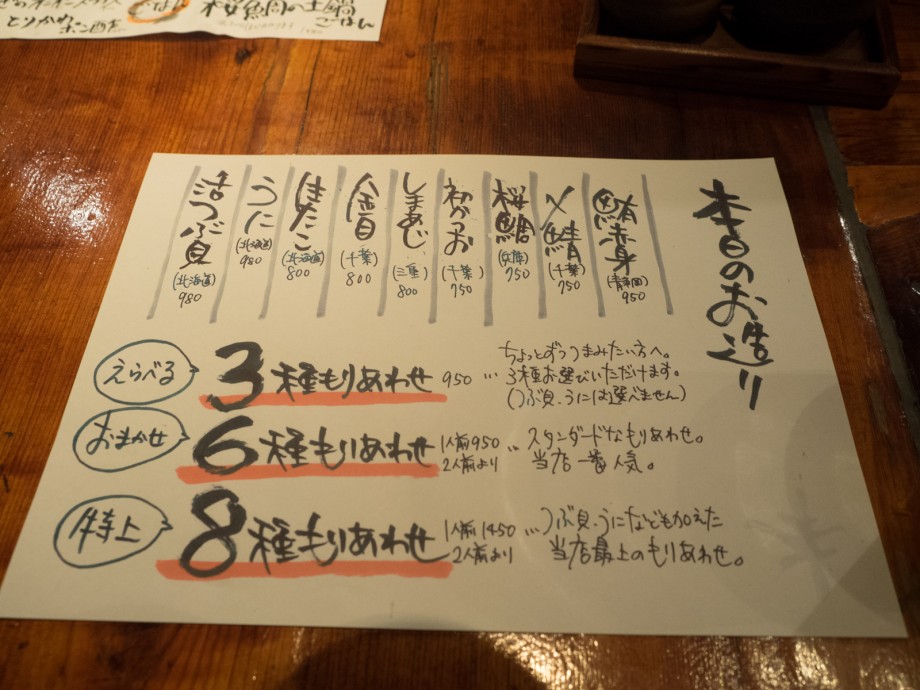 桜鯛の土鍋
ごはん
ごはん
とりかめ
ポン酢
本日のお造り
鮪赤身
(静岡)
950
〆鯖
(千葉)
750
桜鯛
(兵庫)
750
初がつお
(千葉)
750
しまあじ
(三重)
800
金目
(千葉)
800
生たこ
(北海道)
800
うに
(北海道)
980
活つぶ貝
(北海道)
980
えらべる
3種もりあわせ 950 … ちょっとずつつまみたい方へ。
3種お選びいただけます。
(つぶ貝、うには選べません)
おまかせ
6種もりあわせ 1人前950 … スタンダードなもりあわせ。
2人前より 当店一番人気。
特上
8種もりあわせ 1人前1450 … つぶ貝、うになども加えた
2人前より 当店最上のもりあわせ。